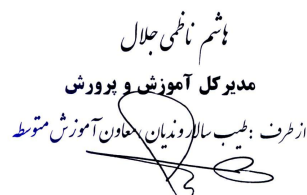 هاشم ناظمی جلال
مدیر کل آموزش و پرورش
از طرف : طیب سالار وندیان معاون آموزش متوسطه